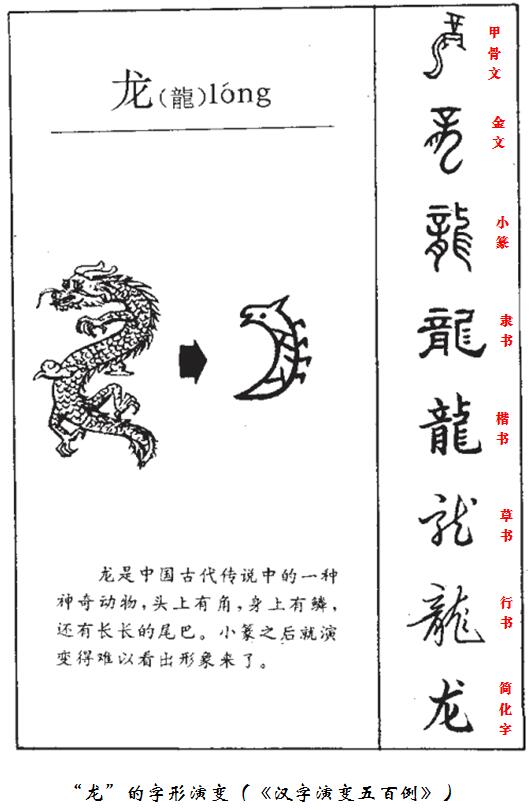 龙(龍)lóng
龙是中国古代传说中的一种
神奇动物,头上有角,身上有鳞,
还有长长的尾巴。小篆之后就演
变得难以看出形象来了。
龍 甲骨文
龍 金文
龍 小篆
龍 隶书
龍 楷书
龙 草书
龍 行书
龙 简化字
“龙”的字形演变(《汉字演变五百例》)